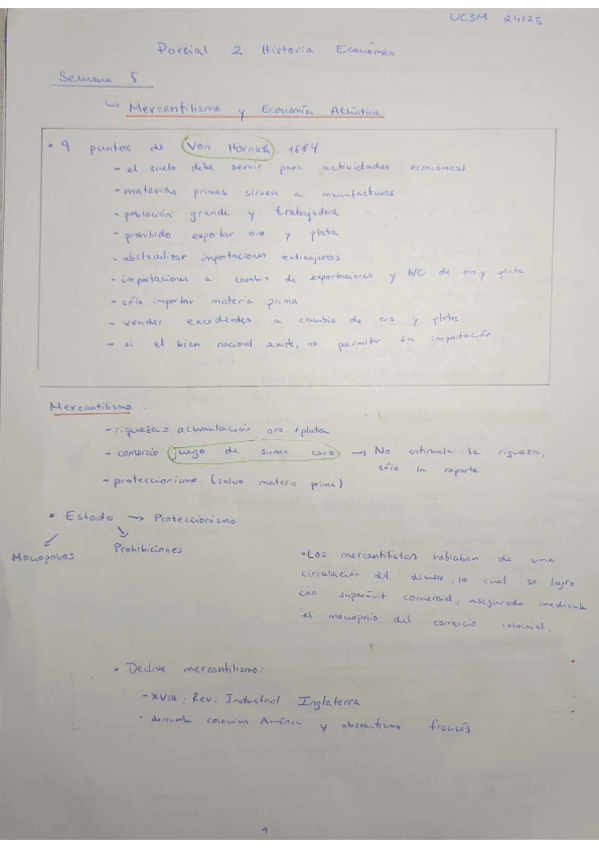 UC3M 24/25
Parcial 2 Historia Económica
Semana 5
↳ Mercantilismo y Economía Atlántica
• 9 puntos de Von Hornick: 1684
- el suelo debe servir para actividades económicas
- materias primas sirven a manufacturas
- población grande y trabajadora
- prohibido exportar oro y plata
- obstaculizar importaciones extranjeras
- importaciones a cambio de exportaciones y NO de oro y plata
- sólo importar materia prima
- vender excedentes a cambio de oro y plata
- si el bien nacional existe, no permitir su importación
Mercantilismo:
- riqueza = acumulación oro / plata
- comercio juego de suma cero → No estimula la riqueza,
sólo la reparte
- proteccionismo (salvo materia prima)
• Estado → Proteccionismo
Monopolios
Prohibiciones
• Los mercantilistas hablaban de una
circulación del dinero, lo cual se logra
con superávit comercial, asegurado mediante
el monopolio del comercio colonial.
• Declive mercantilismo:
- XVIII; Rev. Industrial Inglaterra
- derrumbe colonias América y absolutismo francés.
1